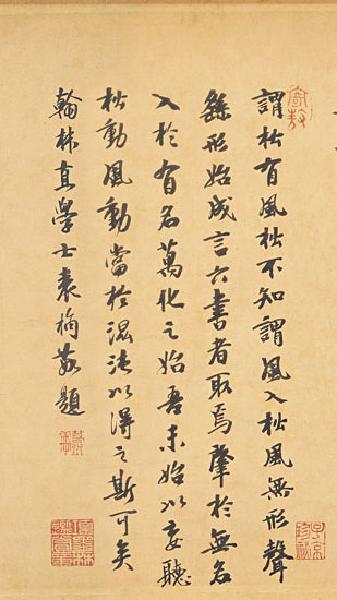 謂松有風松不知謂風入松風無形聲
繇形始成言六書者取焉肇於無名
入於有名萬化之始吾未始以妄聽
松動風動當於混法以得之斯可矣
翰林直學士袁桷敬題